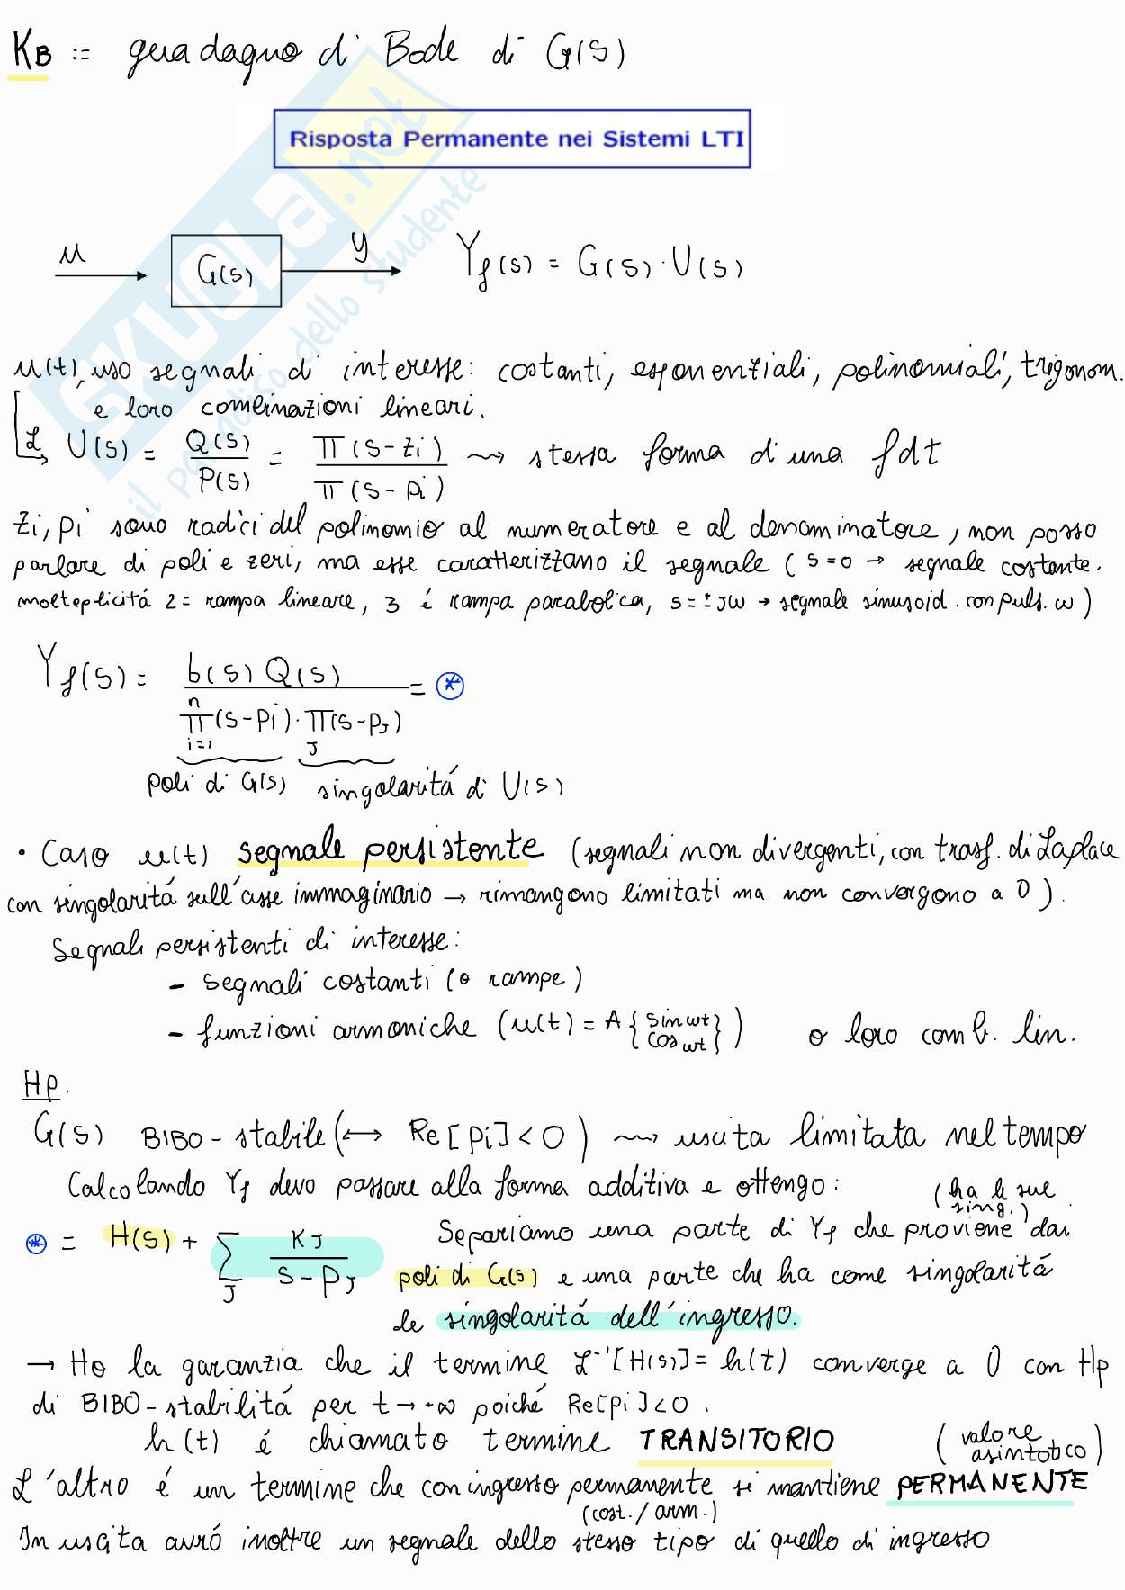 KB := guadagno di Bode di G(s)
Risposta Permanente nei Sistemi LTI
u G(s) y Yf(s) = G(s)·U(s)
u(t), uso segnali di interesse: costanti, esponenziali, polinomiali, trigonom.
e loro combinazioni lineari.
L U(s) = Q(s)/P(s) = Π(s-zi)/Π(s-pi) ⇝ stessa forma di una fdt
zi, pi sono radici del polinomio al numeratore e al denominatore, non posso
parlare di poli e zeri, ma esse caratterizzano il segnale (s=0 → segnale costante.
molteplicitá 2 = rampa lineare, 3 é rampa parabolica, s=±jω → segnale sinusoid. con puls. ω)
Yf(s) = b(s) Q(s) / Π(i=1, n)(s-pi)·Π(J)(s-pJ) = ⊛
poli di G(s) singolaritá di U(s)
• Caso u(t) segnale persistente (segnali non divergenti, con trasf. di Laplace
con singolaritá sull'asse immaginario → rimangono limitati ma non convergono a 0).
Segnali persistenti di interesse:
- segnali costanti (o rampe)
- funzioni armoniche (u(t) = A {sin ωt cos ωt}) o loro comb. lin.
Hp.
G(s) BIBO-stabile (↔ Re[pi]<0) ⇝ uscita limitata nel tempo
Calcolando Yf devo passare alla forma additiva e ottengo: (ha le sue sing.)
⊛ = H(s) + Σ(J) KJ/(s-pJ) Separiamo una parte di Yf che proviene dai
poli di G(s) e una parte che ha come singolaritá
le singolaritá dell'ingresso.
→ Ho la garanzia che il termine L⁻¹[H(s)] = h(t) converge a 0 con Hp
di BIBO-stabilitá per t→+∞ poiché Re[pi]<0.
h(t) é chiamato termine TRANSITORIO (valore asintotico)
L'altro é un termine che con ingresso permanente si mantiene PERMANENTE
(cost./arm.)
In uscita avró inoltre un segnale dello stesso tipo di quello di ingresso
SKUOLA.net
il paradiso dello studente